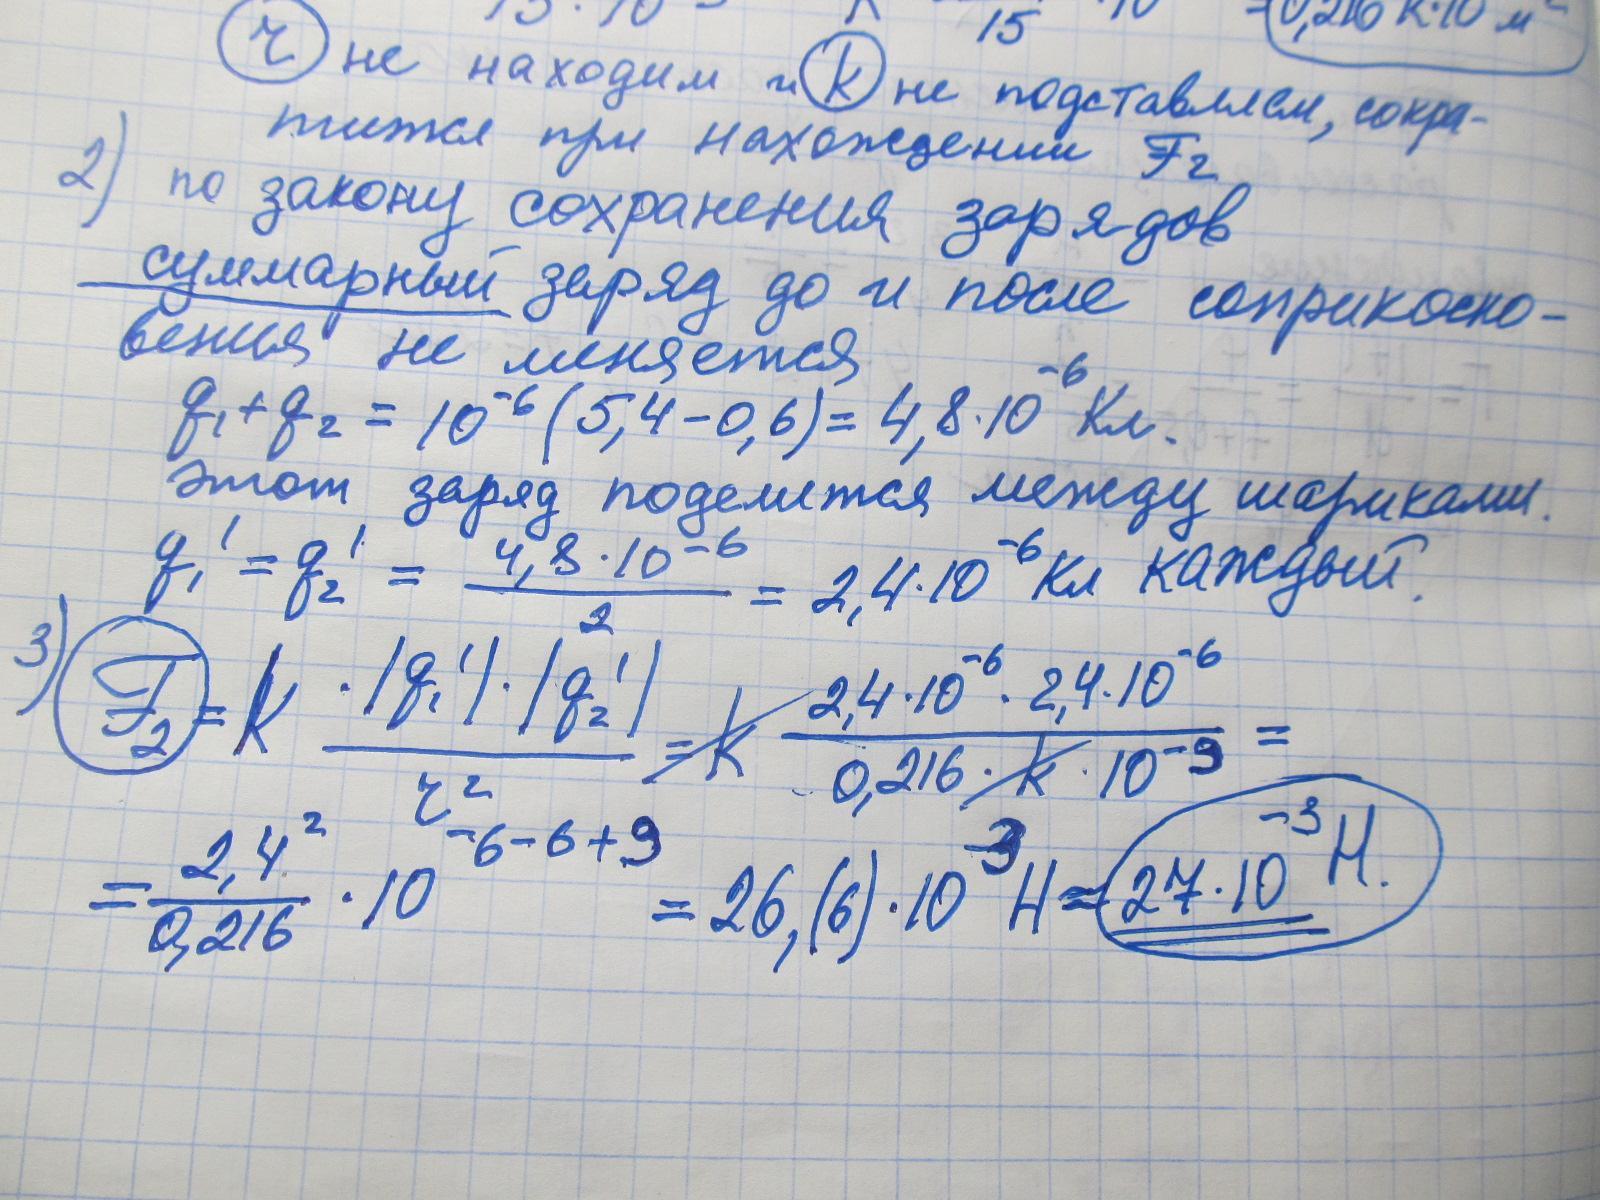 15 · 10
k
15
· 10
= 0,216 k · 10 м²
r не находим и k не подставляем, сокра-
тится при нахождении F₂
2) по закону сохранения зарядов
суммарный заряд до и после соприкосно-
вения не меняется
q₁ + q₂ = 10⁻⁶ (5,4 − 0,6) = 4,8 · 10⁻⁶ Кл.
этот заряд поделится между шариками.
q₁' = q₂' = 4,8 · 10⁻⁶ / 2 = 2,4 · 10⁻⁶ Кл каждый.
3) F₂ = k · |q₁'| · |q₂'| / r² = k 2,4 · 10⁻⁶ · 2,4 · 10⁻⁶ / 0,216 · k · 10⁻⁹ =
= 2,4² / 0,216 · 10⁻⁶⁻⁶⁺⁹ = 26,(6) · 10⁻³ Н = 27 · 10⁻³ Н.